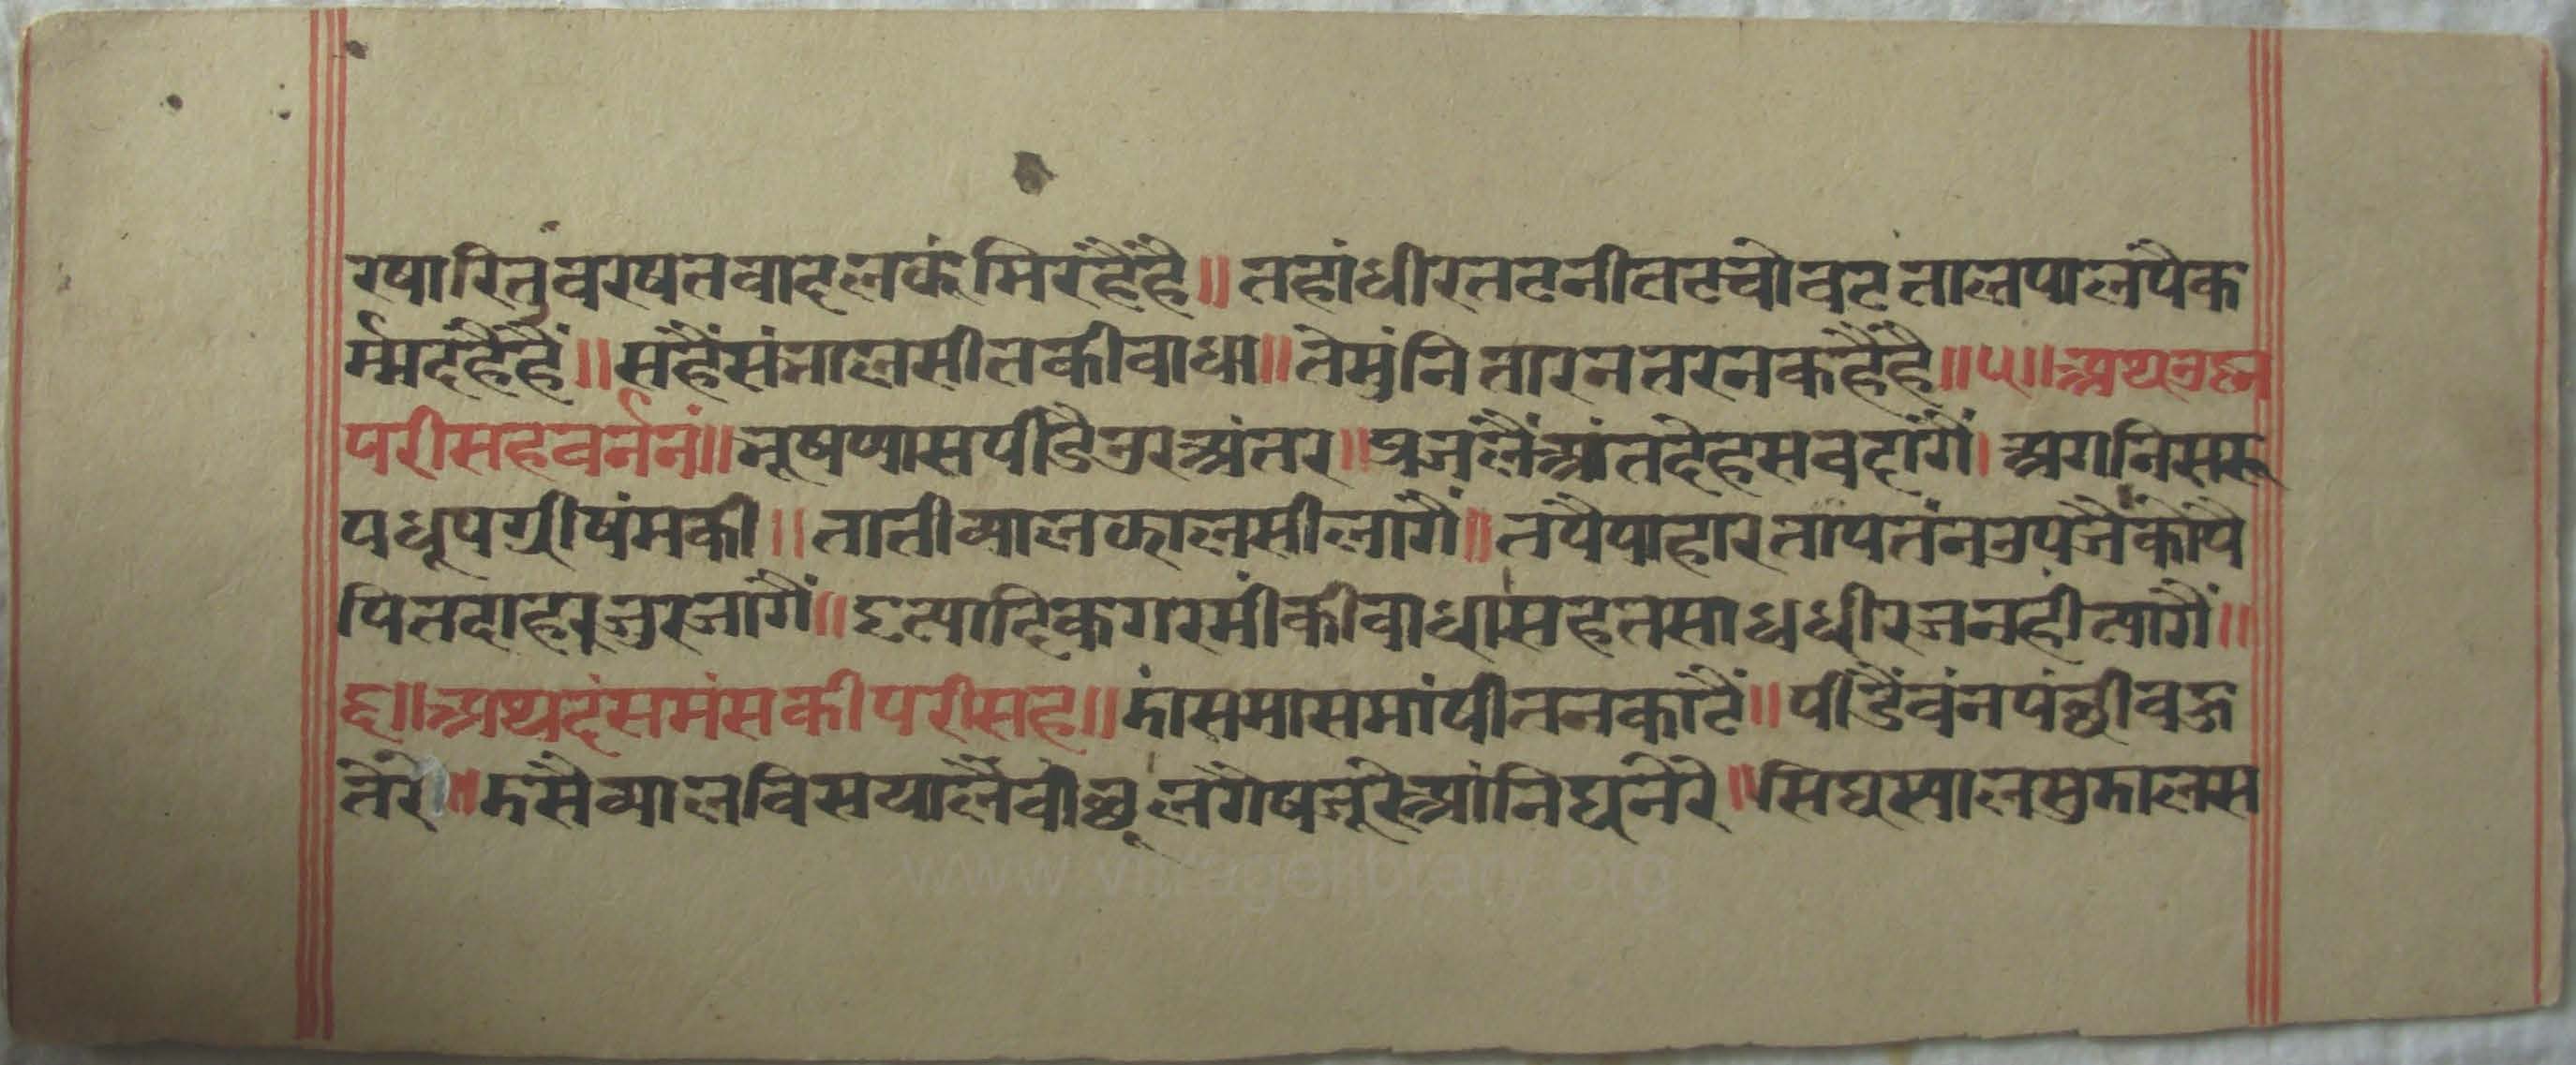 रषारितुवरषतवादलकंमिरहैंहैं॥तहांधीरतटनीतटचौवटतालपालंपैक
र्म्मदहैंहैं॥सहैंसंनालसीतकीवाधा॥तेमुंनितारनतरनकहैंहैं॥५॥अथउस्न
परीसहवर्ननं॥भूषप्याससपीडैउरअंतर॥प्रजलैंआंतदेहसवदागैं।अगनिसरू
पधूपग्रीषंमकी॥तातीव्यालझालसीलागैं॥तपैपाहारतापतंनउपजैंकोंपै
पितदाहनुजुरजागैं॥इत्यादिकगरमींकीवाधासहतसाधधीरजनहींत्यागैं॥
६॥अथदंसमंसकीपरीसह॥दांसमासमांषीतनकाटैं॥पीडैंवंनपंछीवहु
तेरे॥दसैव्यालविसयालैंवीछूलगैंषजूरेआंनिघनेरे॥सिघस्यालसुंडालस
www.vitragelibrary.org